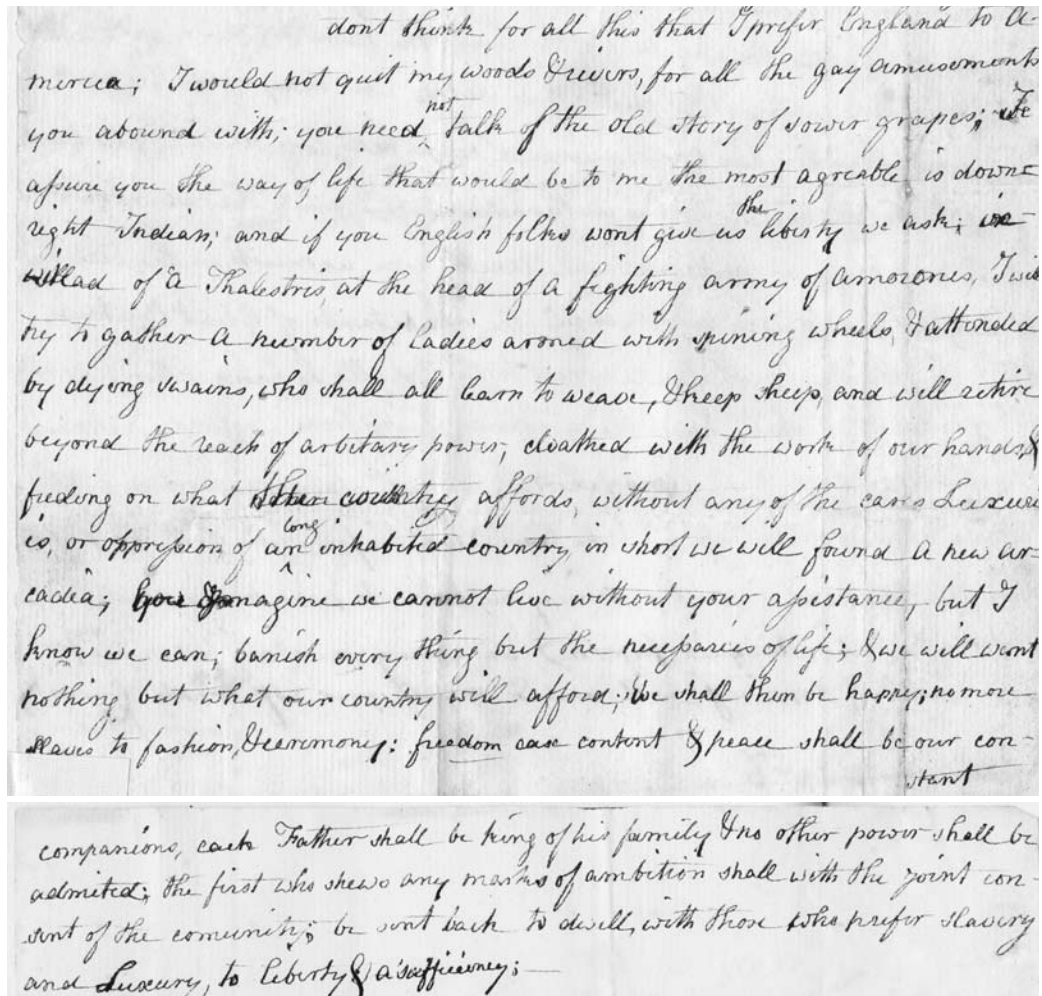 dont think for all this that I prefer England to A-
merica; I would not quit my woods & rivers, for all the gay amusements
you abound with; you need not talk of the old story of sower grapes;
assure you the way of life that would be to me the most agreable is down=
right Indian; and if you English folks wont give us the liberty we ask;
of a Thalestris, at the head of a fighting army of amozones, I will
try to gather a number of Ladies armed with spining wheels, & attended
by dying swains, who shall all learn to weave, & keep sheep, and will retire
beyond the reach of arbitary power; cloathed with the work of our hands, &
feeding on what country affords, without any of the cares Luxuri
is, or oppression of an long inhabited country, in short we will found a new ar-
cadia; we cannot live without your assistance, but I
know we can; banish every thing but the necessaries of life; & we will want
nothing but what our country will afford; We shall then be happy; no more
slaves to fashion, & ceremony: freedom ease content & peace shall be our con-
stant
companions, each Father shall be king of his family & no other power shall be
admited; the first who shews any marks of ambition shall with the joint con-
sent of the comunity; be sent back to dwell, with those who prefer slavery
and Luxury, to liberty & a sufficiency;